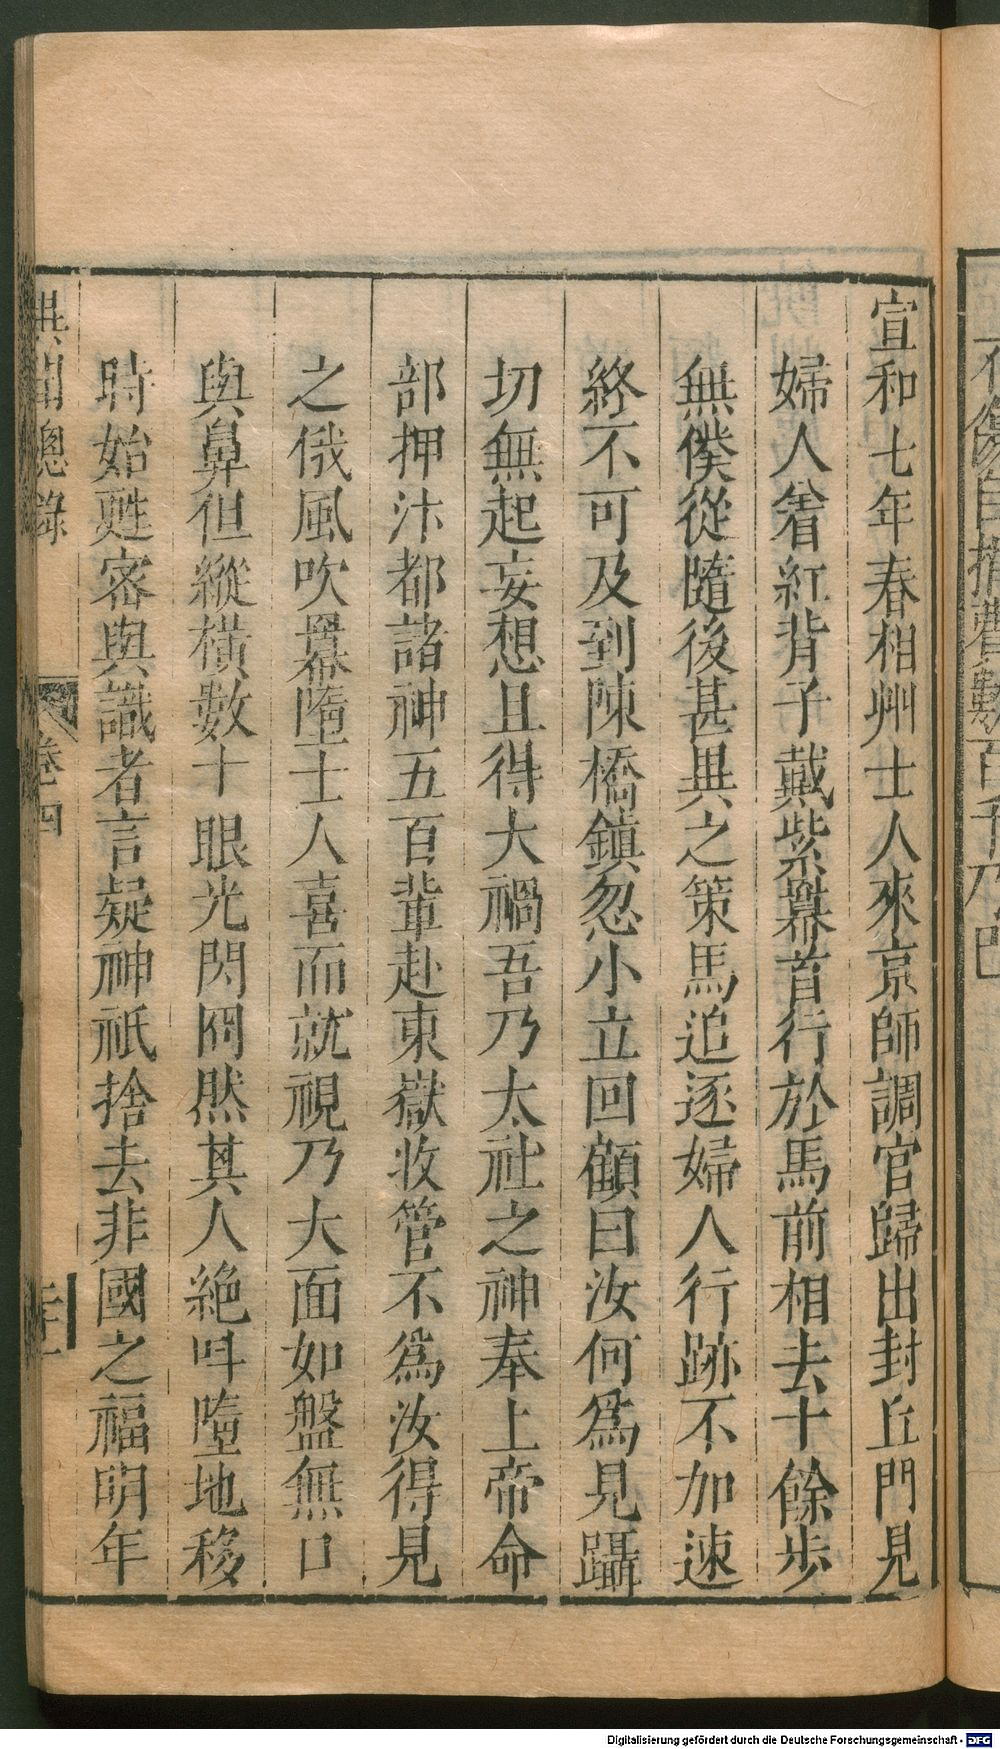 宣和七年春相州士人來京師調官歸出封丘門見
婦人着紅背子戴紫羃首行於馬前相去十餘步
無僕從隨後甚異之策馬追逐婦人行跡不加速
終不可及到陳橋鎮忽小立回顧曰汝何爲見躡
切無起妄想且得大禍吾乃太社之神奉上帝命
部押汴都諸神五百輩赴東嶽收管不爲汝得見
之俄風吹羃墮士人喜而就視乃大面如盤無口
與鼻但縱橫數十眼光閃冏然其人絶呌墮地移
時始甦密與識者言疑神祇捨去非國之福明年
異聞總錄
卷四
Digitalisierung gefördert durch die Deutsche Forschungsgemeinschaft - DFG